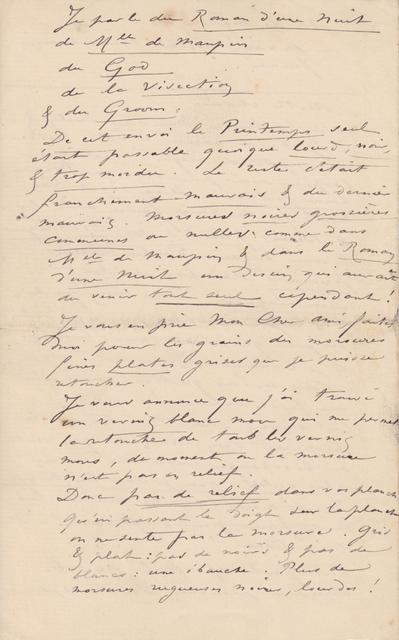 Je parle du Roman d'une Nuit
de Mlle de Maupin
du God
de la Visection
& du Groom.
De cet envoi le Printemps seul
était passable quoique lourd, noir,
& trop mordu. Le reste c'était
franchement mauvais & du dernier
mauvais. Morsures noires grossières
communes ou nulles: comme dans
Mlle de Maupin & dans le Roman
d'une Nuit un Dessin qui aurait
du venir tout seul cependant!
Je vous en prie Mon Cher ami faites
moi pour les grains des morsures
fines plates grises que je puisse
retoucher.
Je vous annonce que j'ai trouvé
un vernis blanc mou qui me permet
la retouche de tous les vernis
mous, du moment ou la morsure
n'est pas en relief.
Donc pas de relief dans vos planches
qu'en passant le doigt sur la planche
on ne sente pas la morsure. Gris
& plat: pas de noirs & pas de
blancs: une ébauche. Plus de
morsures rugueuses noires, lourdes!